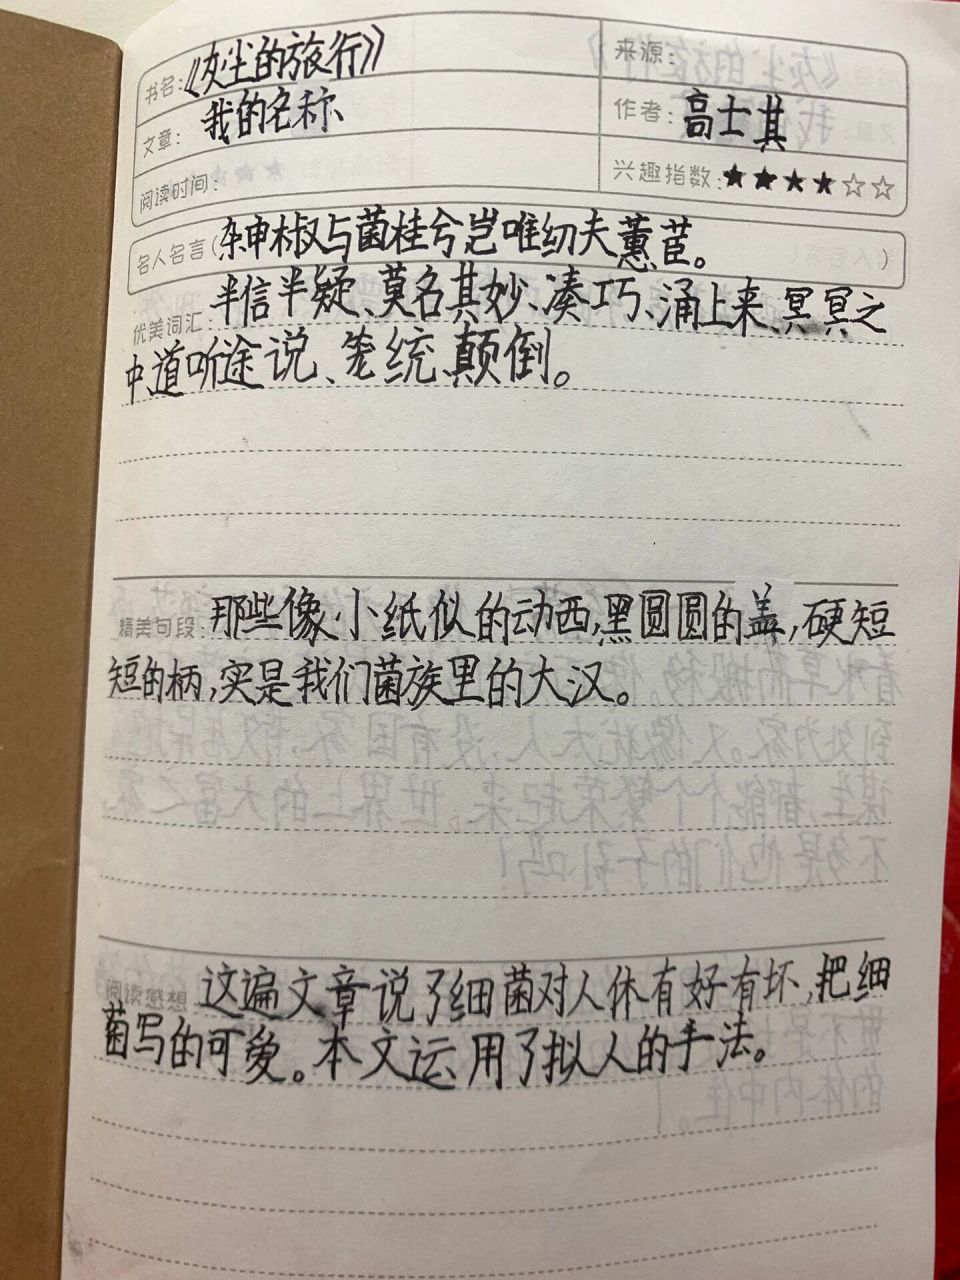 书名:《灰尘的旅行》 来源:
文章: 我的名称 作者: 高士其
阅读时间: 兴趣指数:★★★★☆☆
名人名言(杂申椒与菌桂兮岂唯纫夫蕙茝。)
优美词汇: 半信半疑、莫名其妙、凑巧、涌上来、冥冥之
中、道听途说、笼统、颠倒。
精美句段: 那些像小纸似的动西,黑圆圆的盖,硬短
短的柄,实是我们菌族里的大汉。
阅读感想 这遍文章说了细菌对人体有好有坏,把细
菌写的可爱。本文运用了拟人的手法。